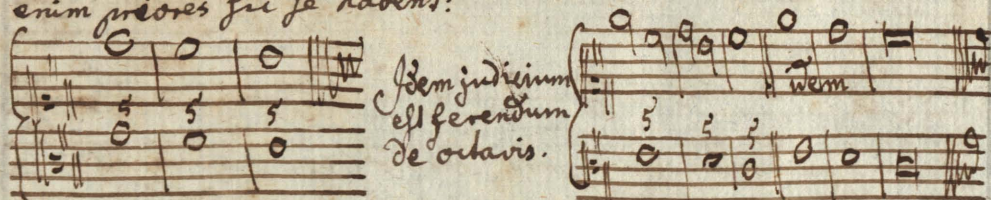 enim priores sic se habent:
5 5 5
Idem judicium
est ferendum
de octavis.
wenn
5 5 5